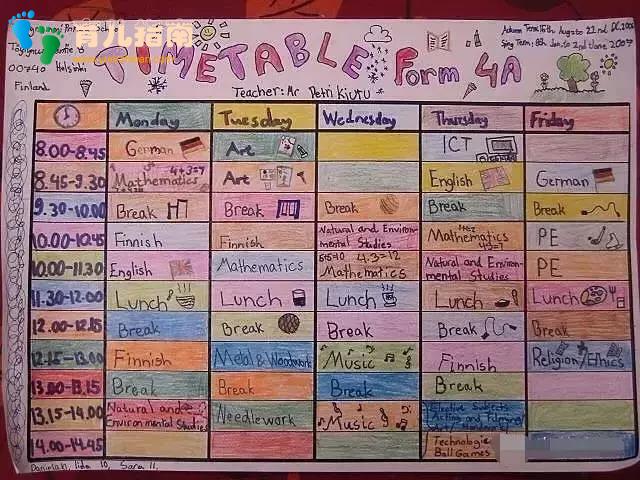 育儿指南
00740 Helsinki
Finland
TIMETABLE Form 4A
Teacher: Mr Petri Kiutu
Monday Tuesday Wednesday Thursday Friday
8.00-8.45 German Art ICT
8.45-9.30 Mathematics 4+3=7 Art English German
9.30-10.00 Break Break Break Break Break
10.00-10.45 Finnish Finnish Natural and Environmental Studies Mathematics PE
10.00-11.30 English Mathematics Mathematics 4.3=12 Natural and Environmental Studies PE
11.30-12.00 Lunch Lunch Lunch Lunch Lunch
12.00-12.15 Break Break Break Break Break
12.15-13.00 Finnish Metal & Woodwork Music Finnish Religion/Ethics
13.00-13.15 Break Break Break Break
13.15-14.00 Natural and Environmental Studies Needlework Music Elective Subjects Acting and
14.00-14.45 Technologie Ball Games